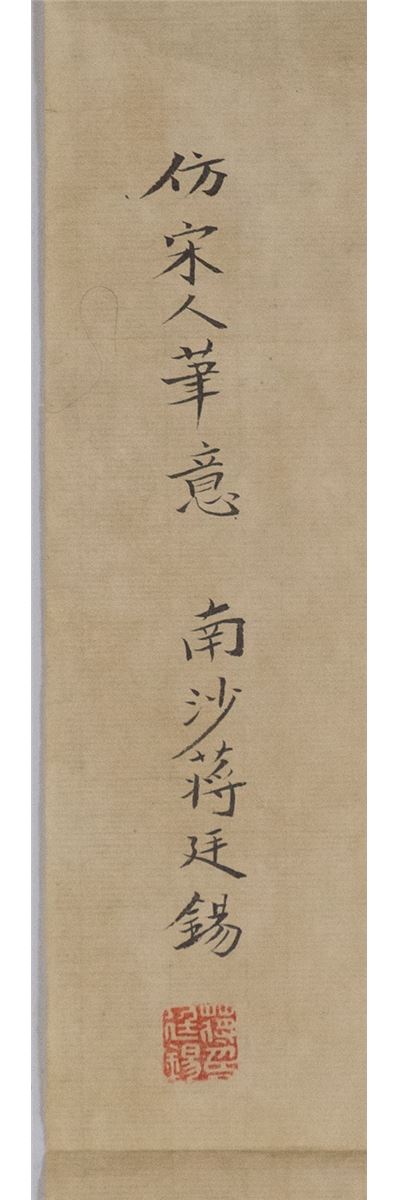 仿宋人筆意 南沙蔣廷錫
蔣印
廷錫